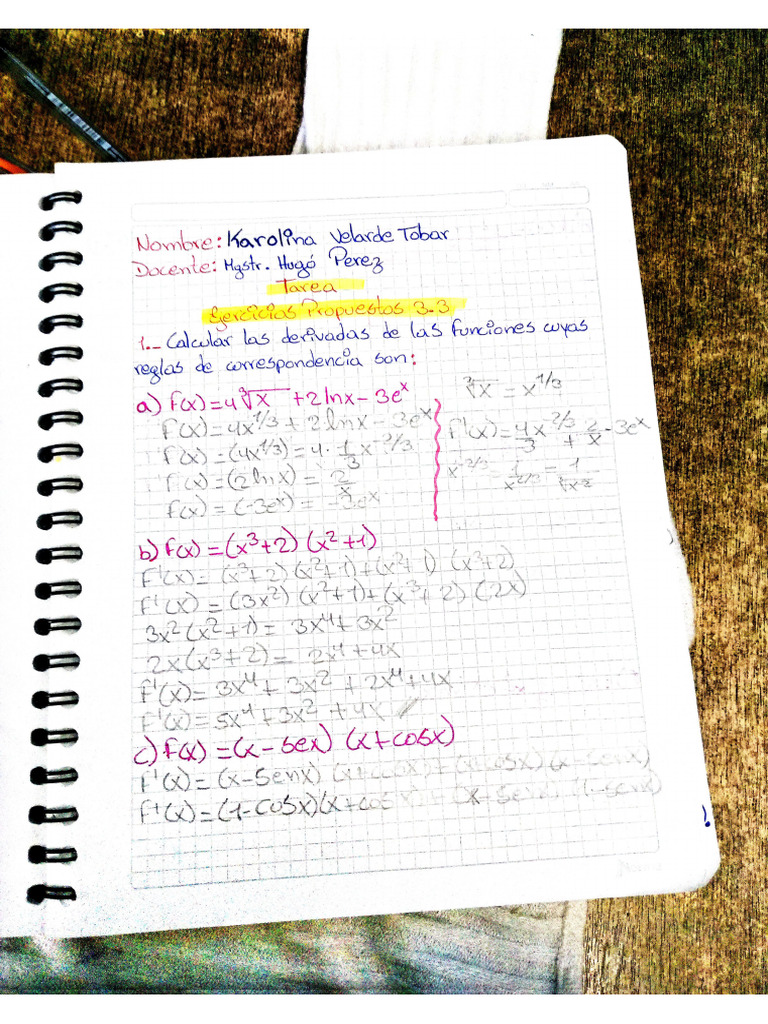 Nombre: Karolina Velarde Tobar
Docente: Mgstr. Hugó Perez
Tarea
Ejercicios Propuestos 3.3
1.- Calcular las derivadas de las funciones cuyas
reglas de correspondencia son:
a) f(x) = 4∛x + 2 ln x - 3e^x
f(x) = 4x^1/3 + 2 ln x - 3e^x
f(x) = (4x^1/3) = 4 · 1/3 x^-2/3
f(x) = (2 ln x) = 2/x
f(x) = (-3e^x) = -3e^x
∛x = x^1/3
f'(x) = 4/3 x^2/3 + 2/x - 3e^x
x^-2/3 = 1/x^2/3 = 1/∛x^2
b) f(x) = (x^3+2) (x^2+1)
f'(x) = (x^3+2) (x^2+1) + (x^2+1) (x^3+2)
f'(x) = (3x^2) (x^2+1) + (x^3+2) (2x)
3x^2(x^2+1) = 3x^4 + 3x^2
2x(x^3+2) = 2x^4 + 4x
f'(x) = 3x^4 + 3x^2 + 2x^4 + 4x
f'(x) = 5x^4 + 3x^2 + 4x //
c) f(x) = (x - sex) (x + cosx)
f'(x) = (x - senx) (x + cosx) + (x cosx) (x - senx)
f'(x) = (1 - cosx)(x + cosx) + (x - senx) (1 - senx)